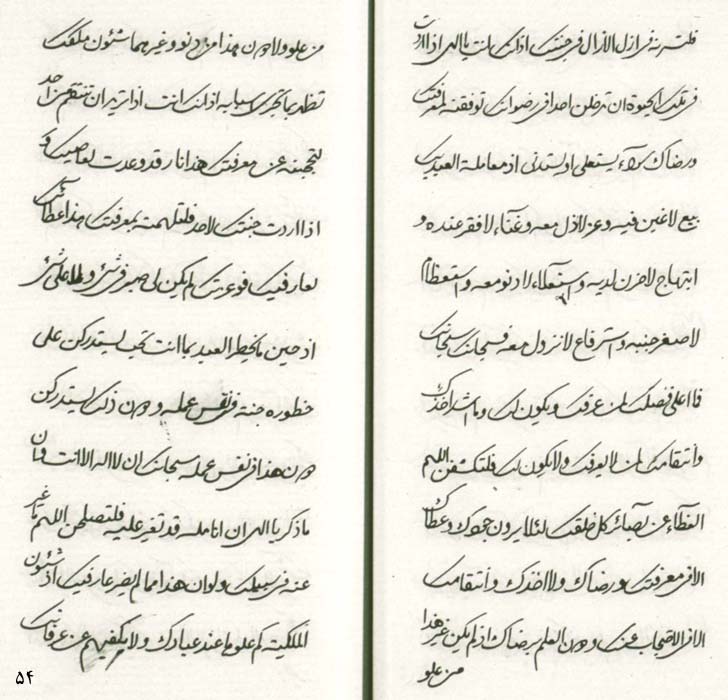 فی ازل الازال فی جنتک انت یا الهی اذا اردت
فی تلک الحیوة ان تدخلن احدا فی رضوانک توفقنه لمعرفتک
ورضاک یستعلی او یستدنی اذ معاملة العبد بک
بیع لا غبن فیه وعز لا ذل معه وغناء لا فقر عنده و
ابتهاج لا حزن لدیه واستعلاء لا دنو معه واستعظام
لا صغر جنبه واسترفاع لا نزول معه فسبحانک سبحانک
ما اعلی فضلک لمن عرفک ویکون لک وما اشد اخذک
وانتقامک لمن لا یعرفک ولا یکون لک فلتکشفن اللهم
الغطاء عن بصائر کل خلقک لئلا یرون جودک وعطاءک
الا فی معرفتک ورضاک ولا اخذک وانتقامک
الا فی الاحتجاب عنک ودون العلم برضاک اذ لم یکن غیر هذا
من علو
من علو ولا دون هذا من دنو وغیرهما شئون ملکک
تظهر بما تجری اذ انک انت اذا ترید ان تنتقم عن احد
لتحجبنه عن معرفتک هذا نار قد وعدت لعاصیک و
اذا اردت جنتک لاحد فلتلهمنه بمعرفتک هذا عطائک
لعارفیک فوعزتک لم یکن لی صبر فی شئ ولا علی شئ
اذ حین ما یخطر العبد بما انت تحب لیستدرکن علی
خطوره جنة فی نفس عمله ودون ذلک لیستدرکن
دون هذا فی نفس عمله سبحانک ان لا اله الا انت وان
ما ذکر یا الهی ان انامله قد تغیر علیه فلتصلحن اللهم ما غیر
عنه فی سبیلک ولو ان هذا مما لم یضر عارفیک اذ شئون
الملکیة کم علو ما عند عبادک ولا یکفیهم عن عرفانک
۵۴